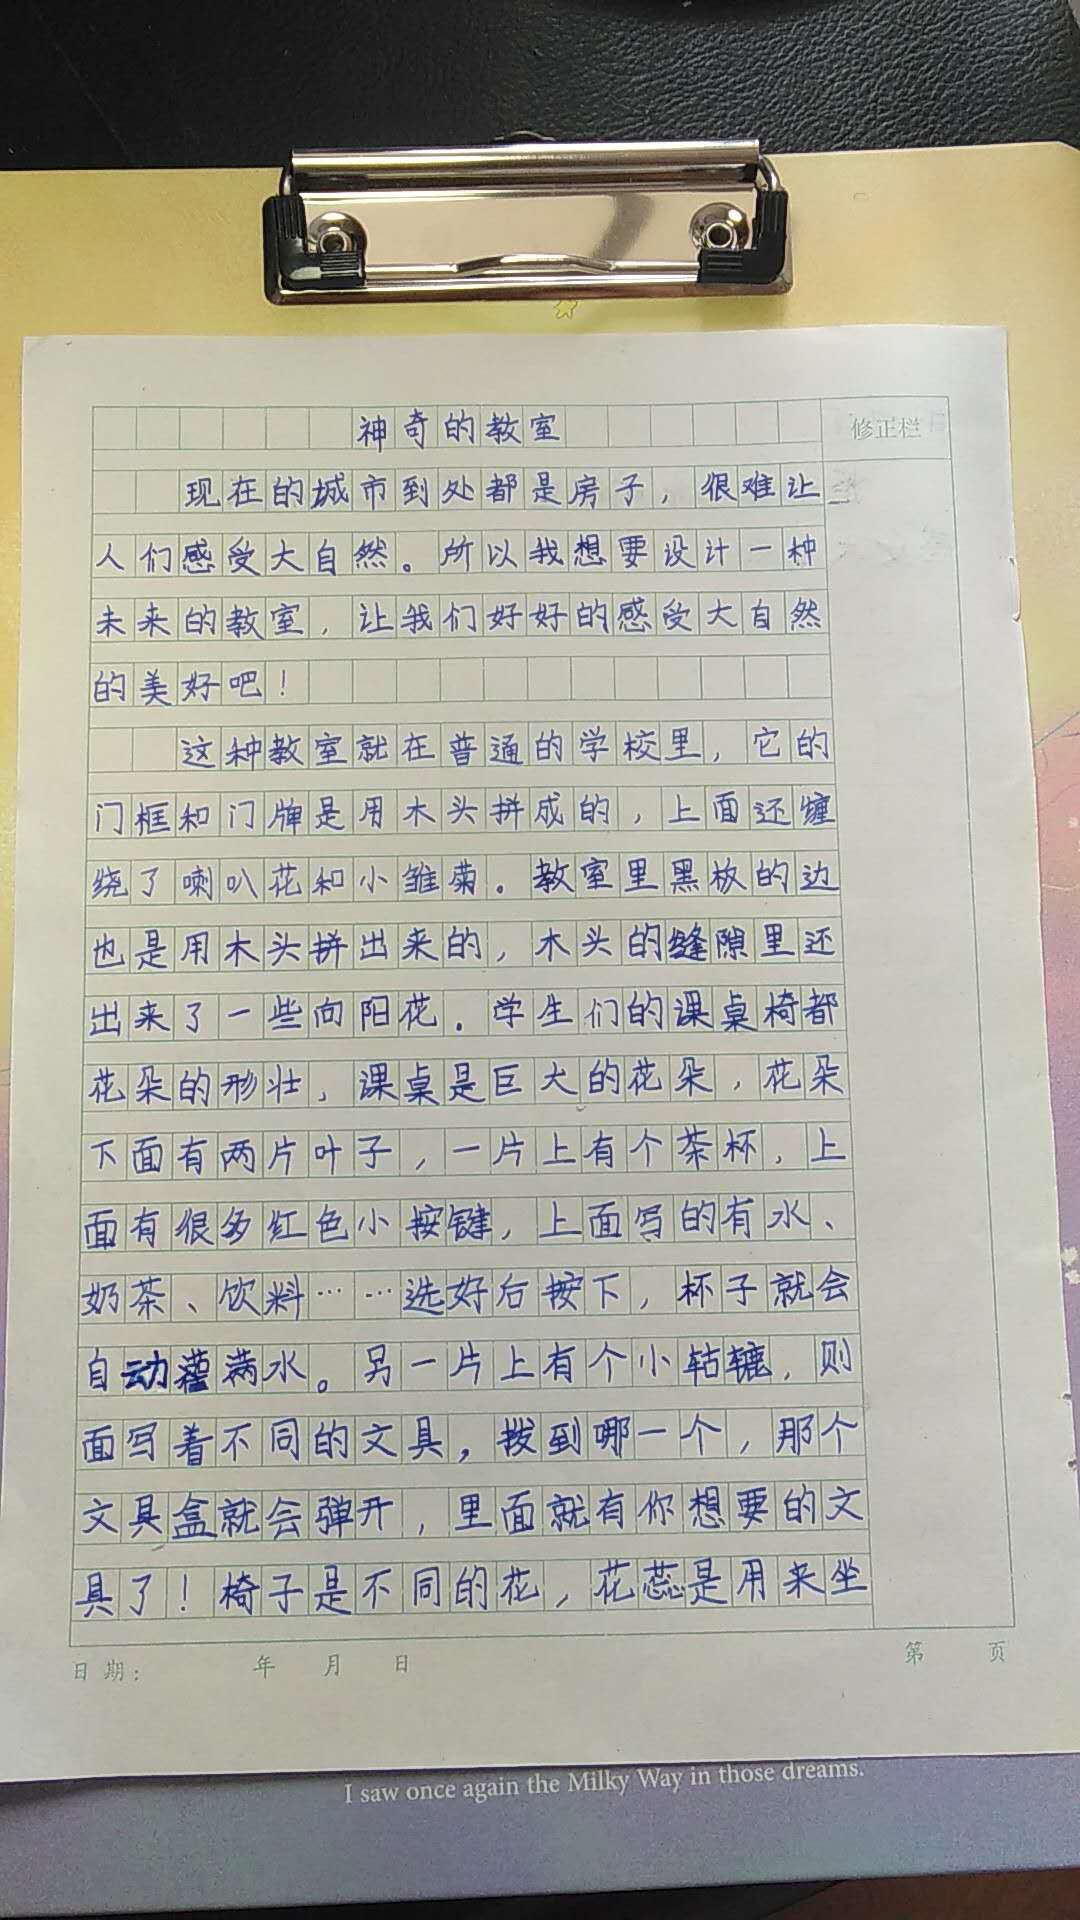 神奇的教室
修正栏
现在的城市到处都是房子，很难让
人们感受大自然。所以我想要设计一种
未来的教室，让我们好好的感受大自然
的美好吧！
这种教室就在普通的学校里，它的
门框和门牌是用木头拼成的，上面还缠
绕了喇叭花和小雏菊。教室里黑板的边
也是用木头拼出来的，木头的缝隙里还
出来了一些向阳花。学生们的课桌椅都
花朵的形壮，课桌是巨大的花朵，花朵
下面有两片叶子，一片上有个茶杯，上
面有很多红色小按键，上面写的有水、
奶茶、饮料……选好后按下，杯子就会
自动灌满水。另一片上有个小轱辘，则
面写着不同的文具，拨到哪一个，那个
文具盒就会弹开，里面就有你想要的文
具了！椅子是不同的花，花蕊是用来坐
日期： 年 月 日
第 页
I saw once again the Milky Way in those dreams.